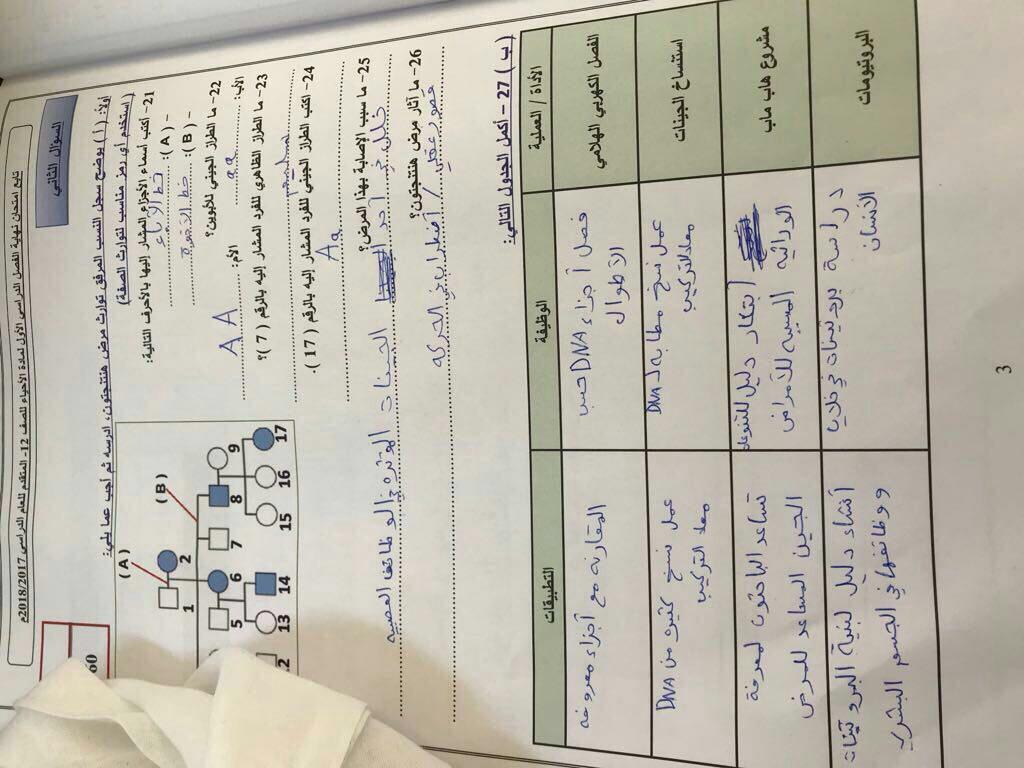 تابع امتحان نهاية الفصل الدراسي الأول لمادة الأحياء للصف 12- المتقدم للعام الدراسي 2018/2017م
السؤال الثاني
60
أولاً: ( أ ) يوضح سجل النسب المرفق توارث مرض هنتنجتون، ادرسه ثم أجب عما يلي:
( استخدم أي رمز مناسب لتوارث الصفة)
21- أكتب أسماء الأجزاء المشار إليها بالأحرف التالية:
- ( A ): خط الآباء
- ( B ): خط الأخوة
22- ما الطراز الجيني للأبوين؟
الأب: aa الأم: AA
23- ما الطراز الظاهري للفرد المشار إليه بالرقم ( 7 )؟
24- اكتب الطراز الجيني للفرد المشار إليه بالرقم ( 17 ).
Aa
25- ما سبب الإصابة بهذا المرض؟
خلل في أحد الجينات المؤثرة في الوظائف العصبية
26- ما آثار مرض هنتنجتون؟
ضمور عقلي / اضطراب في الحركة
( A )
( B )
1 2
5 6 7 8 9
12 13 14 15 16 17
( ب ) 27 - أكمل الجدول التالي:
الأداة / العملية الوظيفة التطبيقات
الفصل الكهربي الهلامي
فصل أجزاء DNA حسب
الأطوال
المقارنه مع أجزاء معروفه
استنساخ الجينات
عمل نسخ مطابه لـ DNA
معاد التركيب
عمل نسخ كثيره من DNA
معاد التركيب
مشروع هاب ماب
ابتكار دليل للتنوعات
الوراثيه المسببه للأمراض
تساعد الباحثون لمعرفة
الجين المساعد للمرض
البروتيومات
دراسة بروتينات في خلايا
الانسان
أنشاء دليل لبنية البروتينات
ووظائفها في الجسم البشري
3